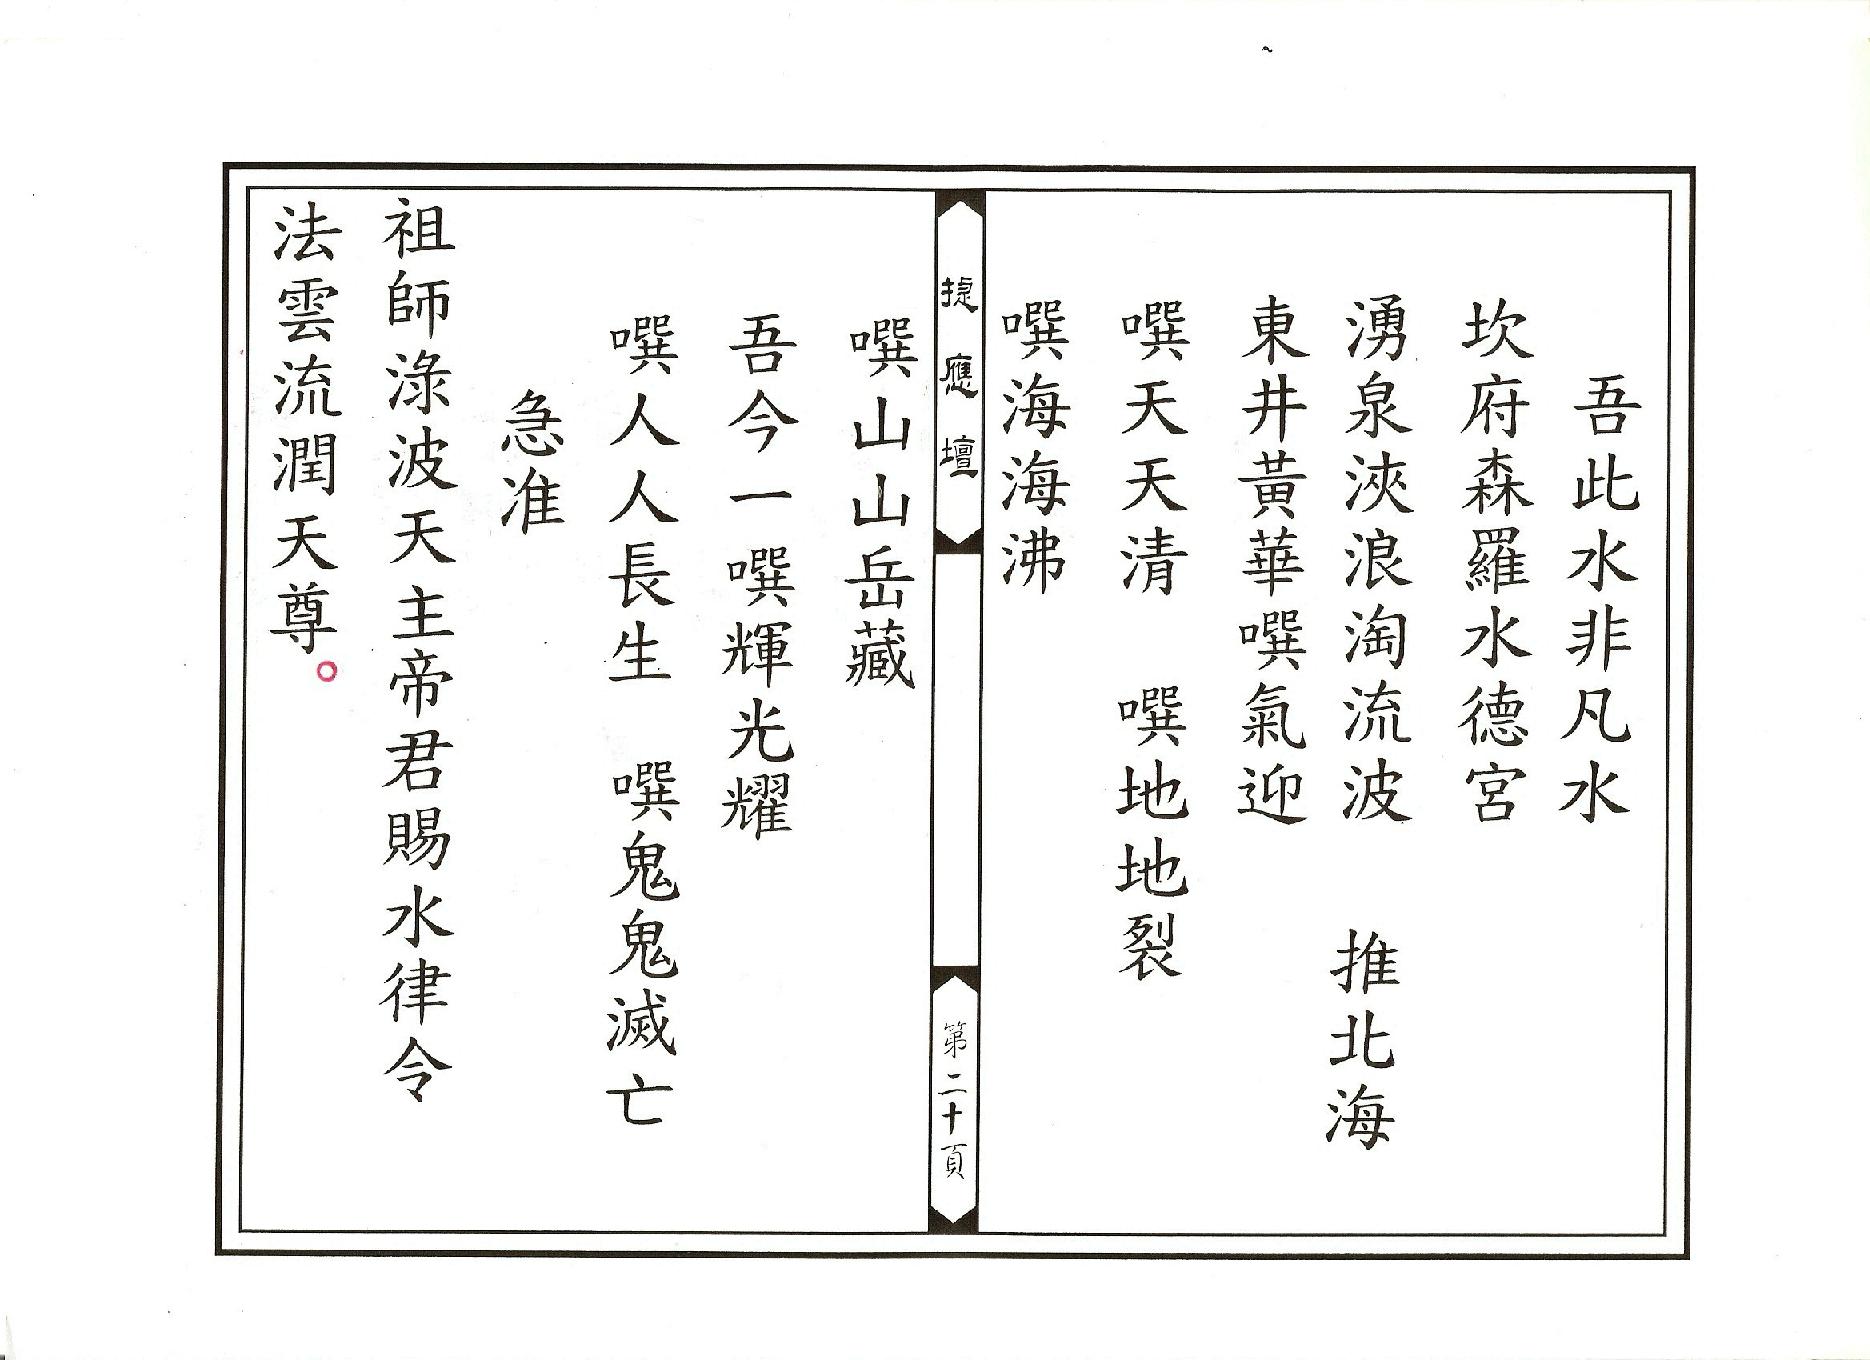 吾此水非凡水
坎府森羅水德宮
湧泉浹浪淘流波　推北海
東井黃華噀氣迎
噀天天清　噀地地裂
噀海海沸
捷應壇
第二十頁
噀山山岳藏
吾今一噀輝光耀
噀人人長生　噀鬼鬼滅亡
急准
祖師淥波天主帝君賜水律令
法雲流潤天尊。